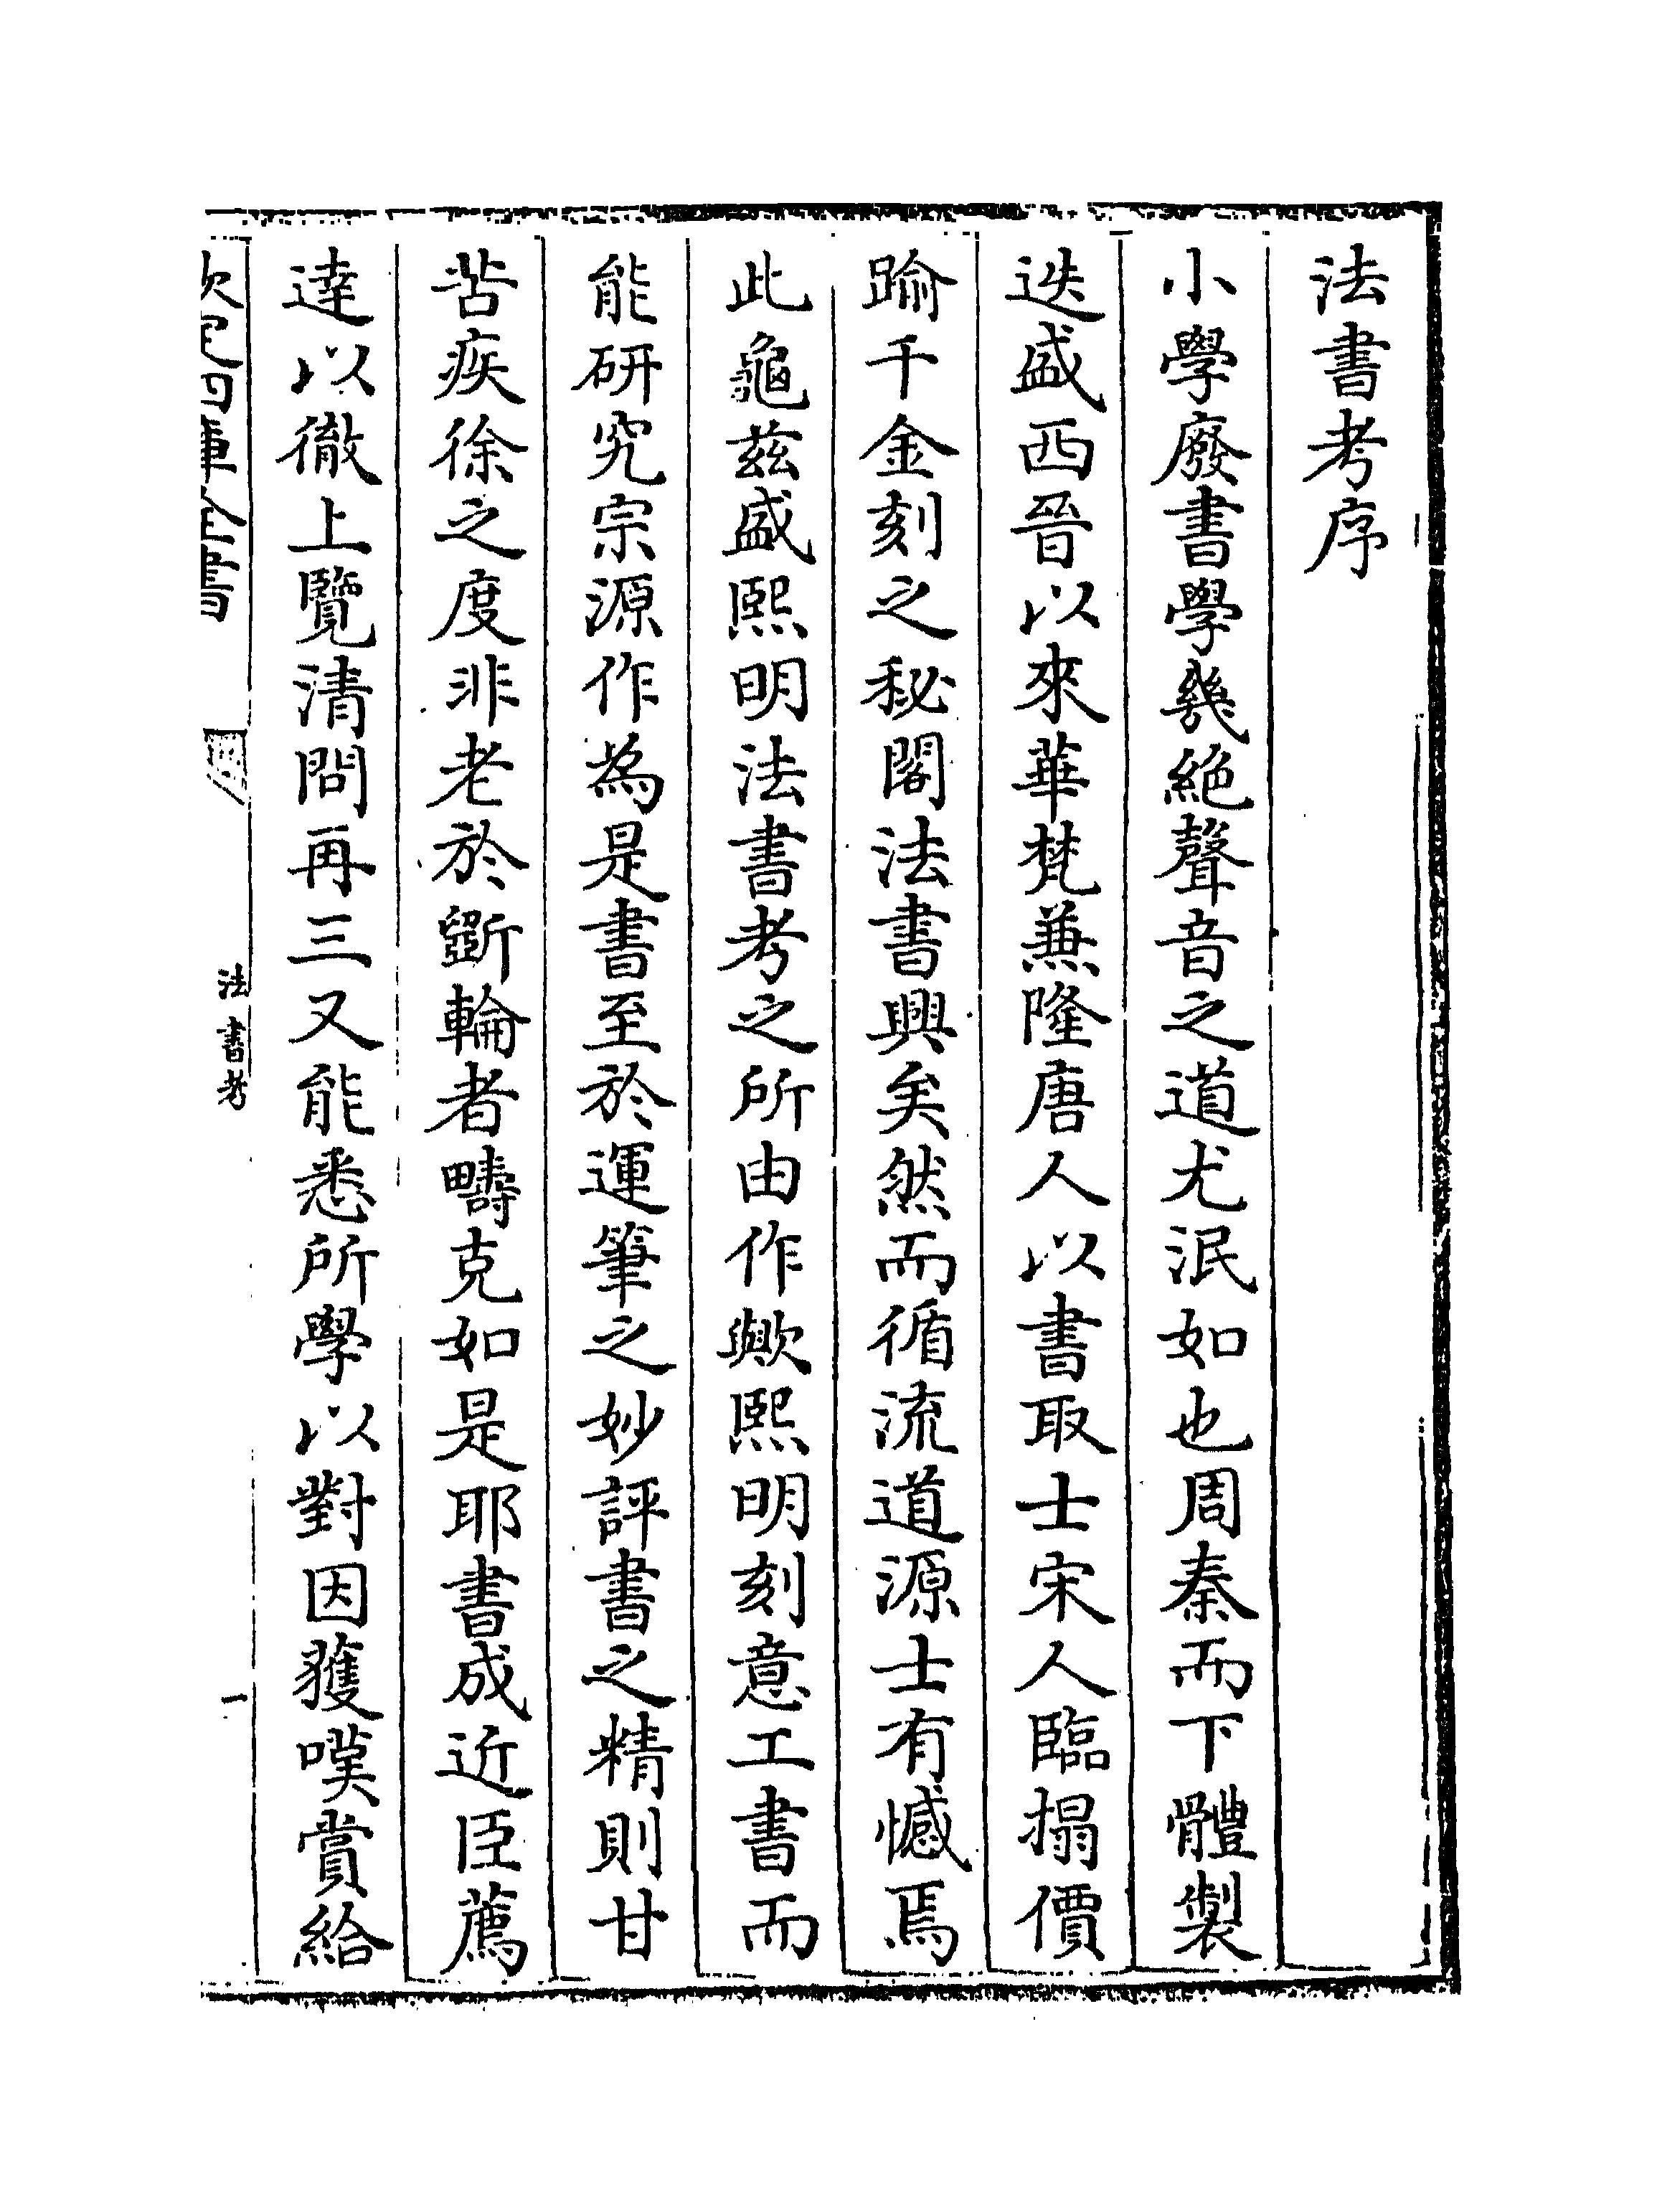 法書考序
小學廢書學幾絕聲音之道尤泯如也周秦而下體製
迭盛西晉以來華梵兼隆唐人以書取士宋人臨搨價
踰千金刻之秘閣法書興矣然而循流道源士有憾焉
此龜茲盛熙明法書考之所由作歟熙明刻意工書而
能研究宗源作為是書至於運筆之妙評書之精則甘
苦疾徐之度非老於斲輪者疇克如是耶書成近臣薦
達以徹上覽清問再三又能悉所學以對因獲嘆賞給
欽定四庫全書
法書考
一